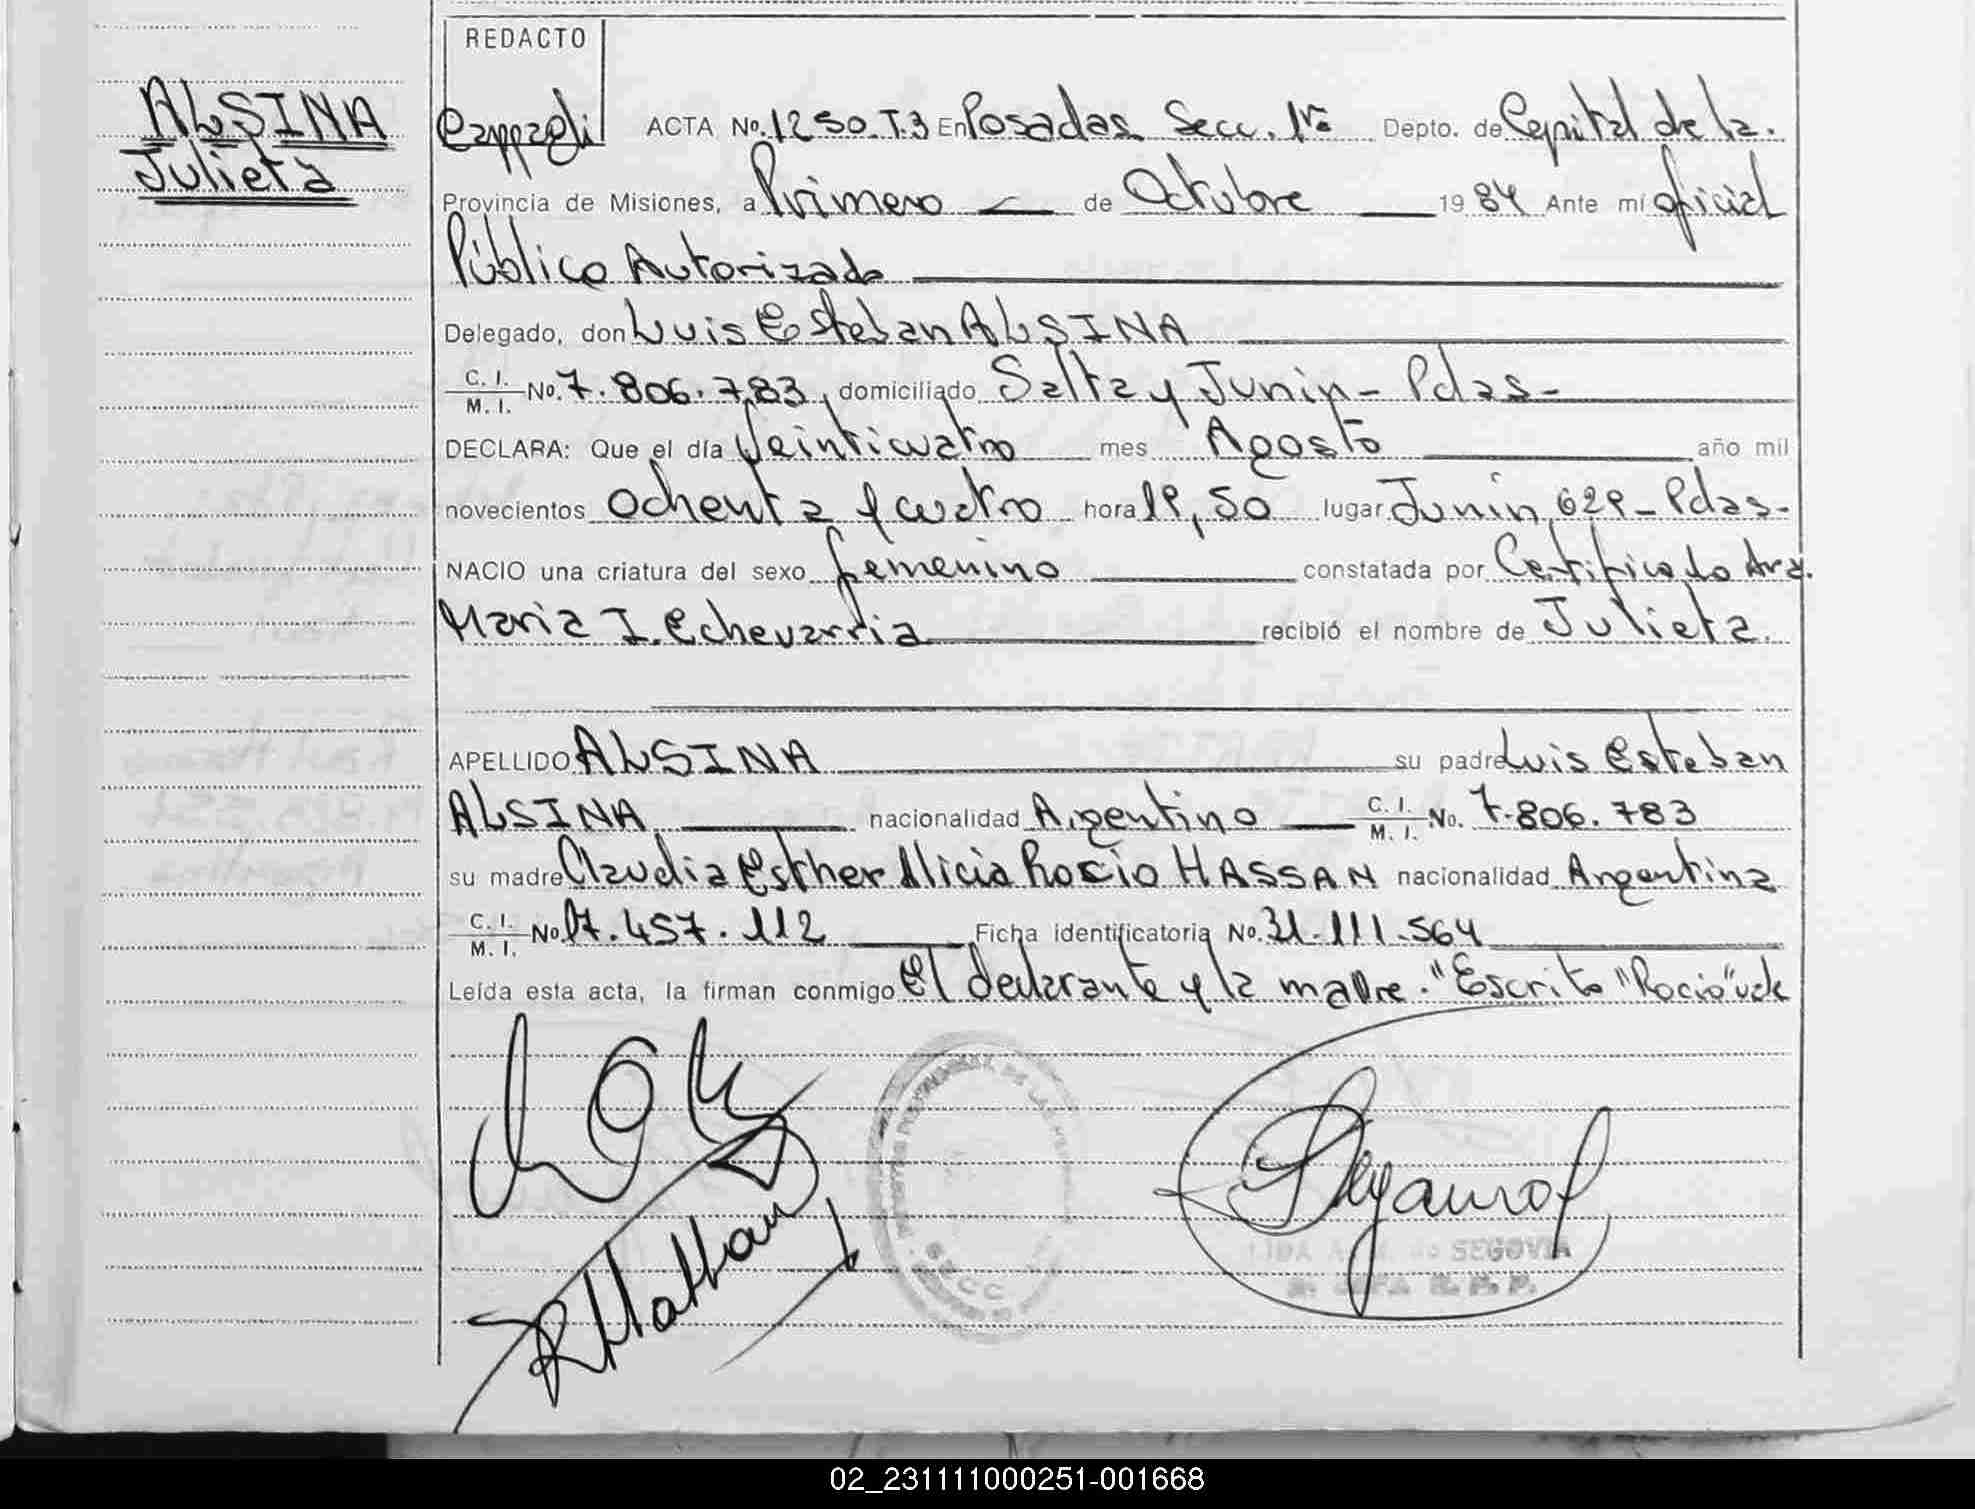 REDACTO
ALSINA
Julieta
Cappagli ACTA No. 1250.T.3 En Posadas Secc. 1ra Depto. de Capital de la.
Provincia de Misiones, a Primero de Octubre 1984 Ante mí oficial
Público Autorizado
Delegado, don Luis Esteban ALSINA
C. I. M. I. No. 7.806.783, domiciliado Salta y Junin - Pdas -
DECLARA: Que el día Veinticuatro mes Agosto año mil
novecientos ochenta y cuatro hora 19,50 lugar Junin 629 - Pdas -
NACIO una criatura del sexo femenino constatada por Certificado Dra.
Maria I. Echevarria recibió el nombre de Julieta.
APELLIDO ALSINA su padre Luis Esteban
ALSINA nacionalidad Argentino C. I. M. I. No. 7.806.783
su madre Claudia Esther Alicia Rocio HASSAN nacionalidad Argentina
C. I. M. I. No. 17.457.112 Ficha identificatoria No. 31.111.564
Leída esta acta, la firman conmigo El declarante y la madre. "Escrito "Rocio" vale
SECC
SEGOVIA
02_231111000251-001668